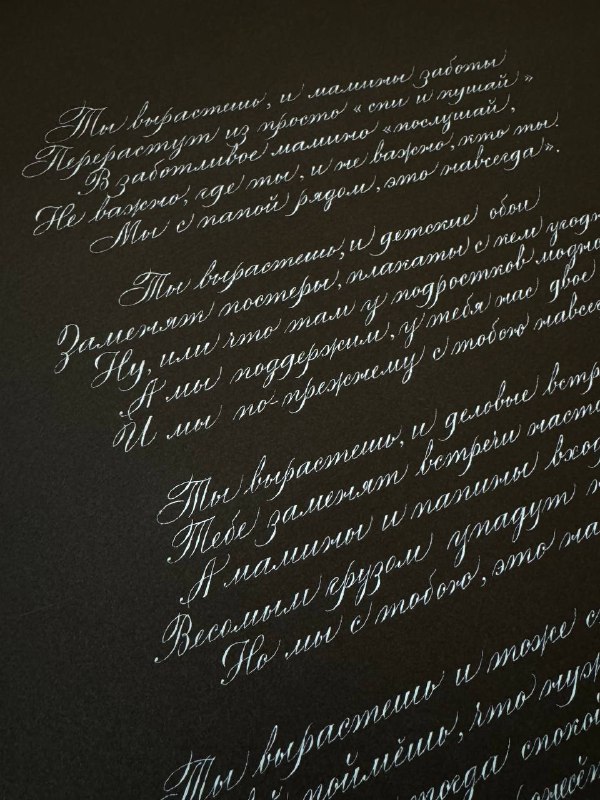 Ты вырастешь, и мамины заботы
Перерастут из просто «спи и кушай»
В заботливое мамино «послушай,
Не важно, где ты, и не важно, кто ты.
Мы с папой рядом, это навсегда».
Ты вырастешь, и детские обои
Заменят постеры, плакаты с кем угодн
Ну, или что там у подростков модно
А мы поддержим, у тебя нас двое
И мы по-прежнему с тобою навсе
Ты вырастешь, и деловые встр
Тебе заменят встречи насто
А мамины и папины вхо
Весомым грузом упадут
Но мы с тобою, это на
Ты вырастешь и тоже с
поймёшь, что нуж
спокой